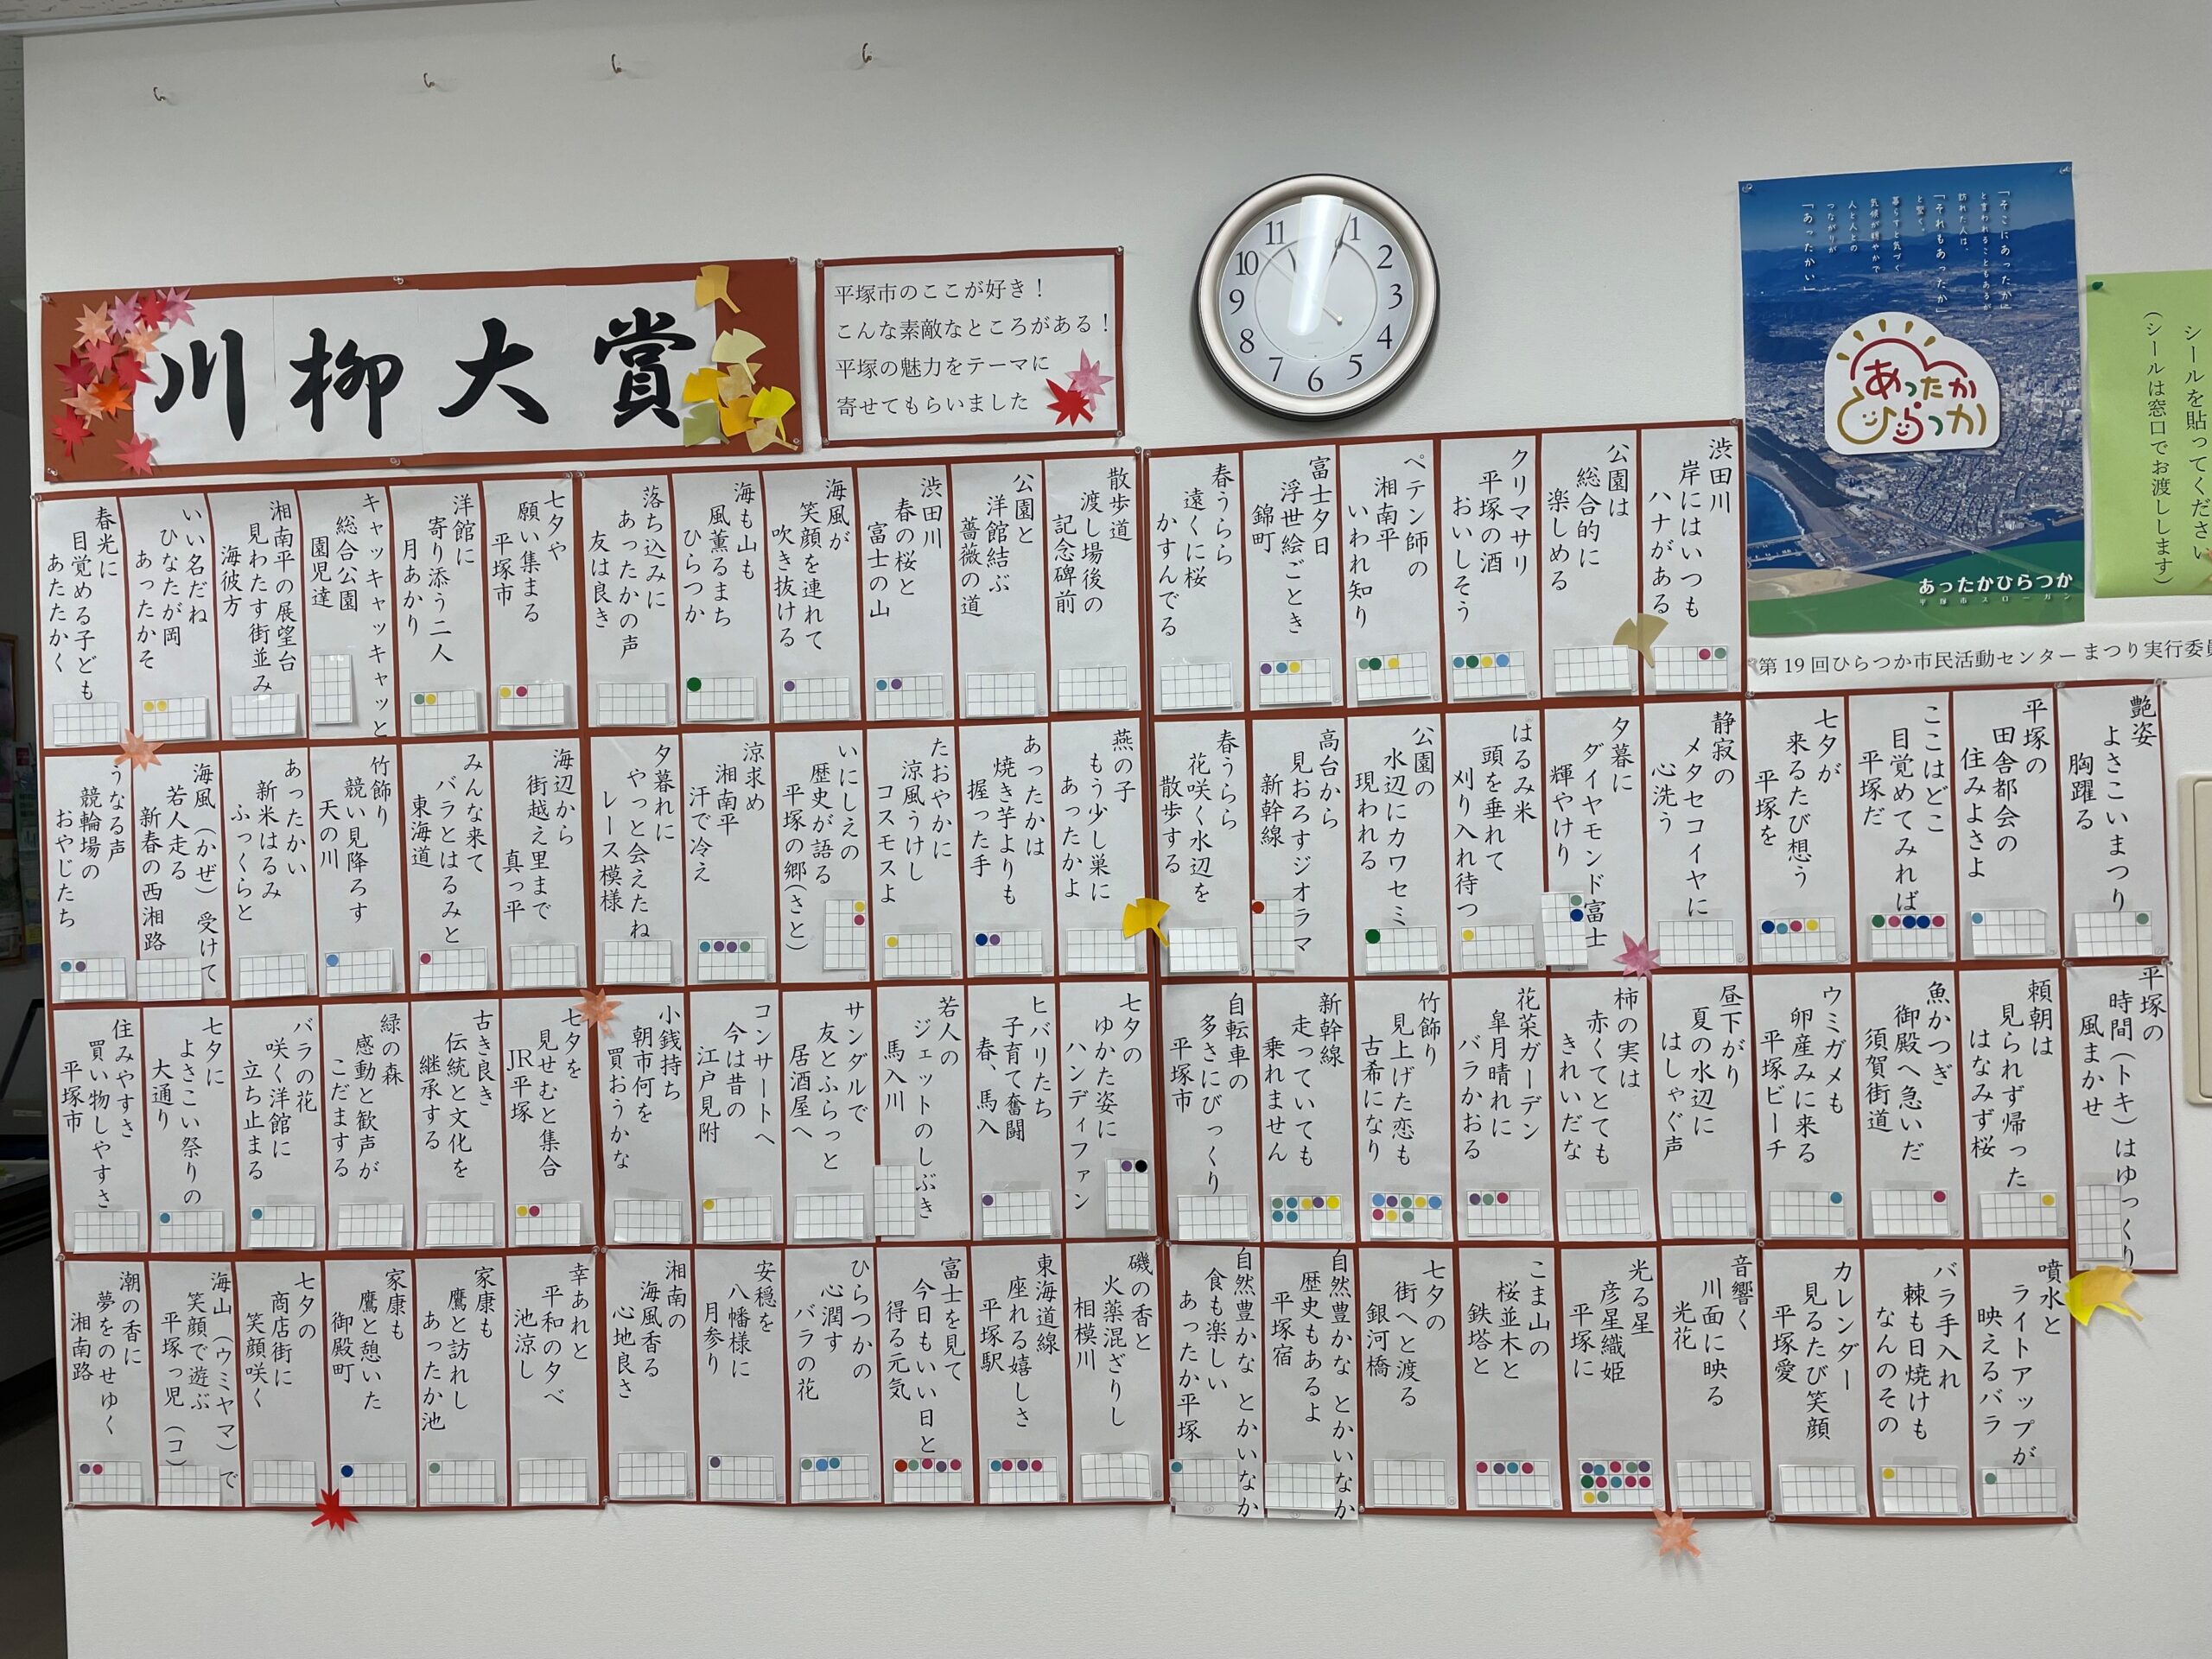 川柳大賞
平塚市のここが好き！
こんな素敵なところがある！
平塚の魅力をテーマに
寄せてもらいました
11
1
10
2
9
3
8
4
7
5
6
「そこにあったかに
と言われることもあるが
訪れた人は、
「それもあったか」
と驚く。
暮らすと気づく
気候が穏やかで
人と人との
つながりが
「あったかい」
あったか
ひらつか
あったかひらつか
平塚市スローガン
シールを貼ってください
（シールは窓口でお渡しします）
第19回ひらつか市民活動センターまつり実行委員
渋田川
岸にはいつも
ハナがある
公園は
総合的に
楽しめる
クリマサリ
平塚の酒
おいしそう
ペテン師の
湘南平
いわれ知り
富士夕日
浮世絵ごとき
錦町
春うらら
遠くに桜
かすんでる
散歩道
渡し場後の
記念碑前
公園と
洋館結ぶ
薔薇の道
渋田川
春の桜と
富士の山
海風が
笑顔を連れて
吹き抜ける
海も山も
風薫るまち
ひらつか
落ち込みに
あったかの声
友は良き
七夕や
願い集まる
平塚市
洋館に
寄り添う二人
月あかり
キャッキャッキャッと
総合公園
園児達
湘南平の展望台
見わたす街並み
海彼方
いい名だね
ひなたが岡
あったかそ
春光に
目覚める子ども
あたたかく
艶姿
よさこいまつり
胸躍る
平塚の
田舎都会の
住みよさよ
ここはどこ
目覚めてみれば
平塚だ
七夕が
来るたび想う
平塚を
静寂の
メタセコイヤに
心洗う
夕暮に
ダイヤモンド富士
輝やけり
はるみ米
頭を垂れて
刈り入れ待つ
公園の
水辺にカワセミ
現われる
高台から
見おろすジオラマ
新幹線
春うらら
花咲く水辺を
散歩する
燕の子
もう少し巣に
あったかよ
あったかは
焼き芋よりも
握った手
たおやかに
涼風うけし
コスモスよ
いにしえの
歴史が語る
平塚の郷（さと）
涼求め
湘南平
汗で冷え
夕暮れに
やっと会えたね
レース模様
海辺から
街越え里まで
真っ平
みんな来て
バラとはるみと
東海道
竹飾り
競い見降ろす
天の川
あったかい
新米はるみ
ふっくらと
海風（かぜ）受けて
若人走る
新春の西湘路
うなる声
競輪場の
おやじたち
平塚の
時間（トキ）はゆっくり
風まかせ
頼朝は
見られず帰った
はなみず桜
魚かつぎ
御殿へ急いだ
須賀街道
ウミガメも
卵産みに来る
平塚ビーチ
昼下がり
夏の水辺に
はしゃぐ声
柿の実は
赤くてとても
きれいだな
花菜ガーデン
皐月晴れに
バラかおる
竹飾り
見上げた恋も
古希になり
新幹線
走っていても
乗れません
自転車の
多さにびっくり
平塚市
七夕の
ゆかた姿に
ハンディファン
ヒバリたち
子育て奮闘
春、馬入
若人の
ジェットのしぶき
馬入川
サンダルで
友とふらっと
居酒屋へ
コンサートへ
今は昔の
江戸見附
小銭持ち
朝市何を
買おうかな
七夕を
見せむと集合
JR平塚
古き良き
伝統と文化を
継承する
緑の森
感動と歓声が
こだまする
バラの花
咲く洋館に
立ち止まる
七夕に
よさこい祭りの
大通り
住みやすさ
買い物しやすさ
平塚市
噴水と
ライトアップが
映えるバラ
バラ手入れ
棘も日焼けも
なんのその
カレンダー
見るたび笑顔
平塚愛
音響く
川面に映る
光花
光る星
彦星織姫
平塚に
こま山の
桜並木と
鉄塔と
七夕の
街へと渡る
銀河橋
自然豊かな とかいなか
歴史もあるよ
平塚宿
自然豊かな とかいなか
食も楽しい
あったか平塚
磯の香と
火薬混ざりし
相模川
東海道線
座れる嬉しさ
平塚駅
富士を見て
今日もいい日と
得る元気
ひらつかの
心潤す
バラの花
安穏を
八幡様に
月参り
湘南の
海風香る
心地良さ
幸あれと
平和の夕べ
池涼し
家康も
鷹と訪れし
あったか池
家康も
鷹と憩いた
御殿町
七夕の
商店街に
笑顔咲く
海山（ウミヤマ）で
笑顔で遊ぶ
平塚っ児（コ）
潮の香に
夢をのせゆく
湘南路